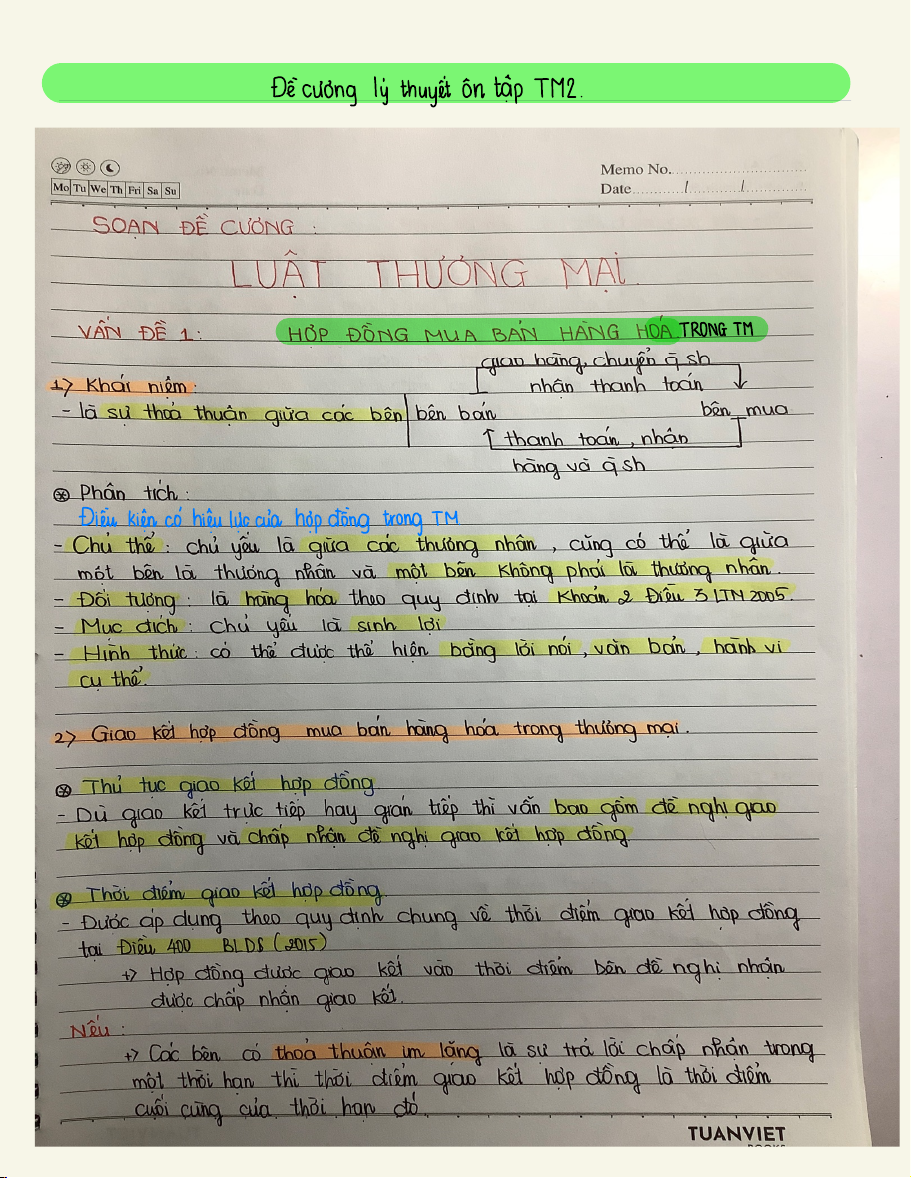 Đề cương lý thuyết ôn tập TM2.
Memo No.
Mo Tu We Th Fri Sa Su
Date / /
SOẠN ĐỀ CƯƠNG :
LUẬT THƯƠNG MẠI.
VẤN ĐỀ 1: HỢP ĐỒNG MUA BÁN HÀNG HOÁ TRONG TM
giao hàng, chuyển q sh
1) Khái niệm: nhận thanh toán
- là sự thoả thuận giữa các bên bên bán bên mua
thanh toán, nhận
hàng và q sh
⊛ Phân tích:
Điều kiện có hiệu lực của hợp đồng trong TM
- Chủ thể: chủ yếu là giữa các thương nhân, cũng có thể là giữa
một bên là thương nhân và một bên không phải là thương nhân.
- Đối tượng: là hàng hóa theo quy định tại Khoản 2 Điều 3 LTM 2005.
- Mục đích: chủ yếu là sinh lợi
- Hình thức: có thể được thể hiện bằng lời nói, văn bản, hành vi
cụ thể.
2) Giao kết hợp đồng mua bán hàng hóa trong thương mại.
⊛ Thủ tục giao kết hợp đồng
- Dù giao kết trực tiếp hay gián tiếp thì vẫn bao gồm đề nghị giao
kết hợp đồng và chấp nhận đề nghị giao kết hợp đồng.
⊛ Thời điểm giao kết hợp đồng
- Được áp dụng theo quy định chung về thời điểm giao kết hợp đồng
tại Điều 400 BLDS (2015)
+) Hợp đồng được giao kết vào thời điểm bên đề nghị nhận
được chấp nhận giao kết.
Nếu:
+) Các bên có thoả thuận im lặng là sự trả lời chấp nhận trong
một thời hạn thì thời điểm giao kết hợp đồng là thời điểm
cuối cùng của thời hạn đó.
TUANVIET